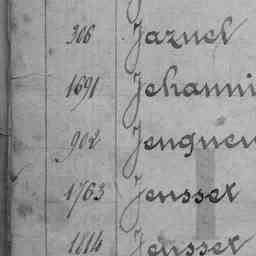 306 Jaznel
1691 Jehanni
902 Jenguen
1763 Jensset
1114 Jensset